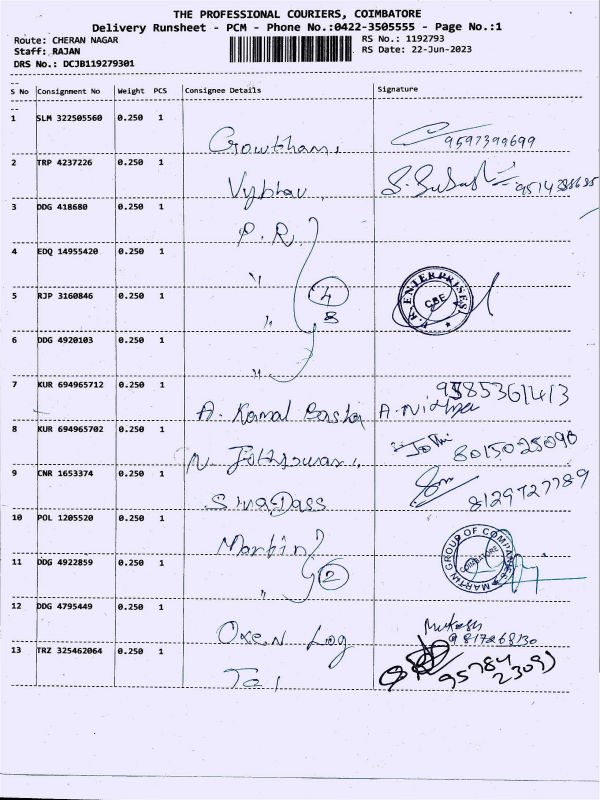 THE PROFESSIONAL COURIERS, COIMBATORE
Delivery Runsheet - PCM - Phone No.:0422-3505555 - Page No.:1
Route: CHERAN NAGAR
RS No.: 1192793
Staff: RAJAN
RS Date: 22-Jun-2023
DRS No.: DCJB119279301
S No Consignment No Weight PCS Consignee Details Signature
1 SLM 322505560 0.250 1
Gowtham, 9597399699
2 TRP 4237226 0.250 1
Vybhav
3 DDG 418680 0.250 1
P.R.
4 EDQ 14955420 0.250 1
"
4
5 RJP 3160846 0.250 1
V.R ENTERPRISES CBE
" 8
6 DDG 4920103 0.250 1
"
7 KUR 694965712 0.250 1
A. Kamal Basha A. Nithya 9585361413
8 KUR 694965702 0.250 1
N. Jothiswari, Jothi 8015025090
9 CNR 1653374 0.250 1
SivaDass 8129727789
10 POL 1205520 0.250 1
Martin
11 DDG 4922859 0.250 1
" 2
MARTIN GROUP OF COMPANIES COIMBATORE
12 DDG 4795449 0.250 1
Oxen Log Mukesh
13 TRZ 325462064 0.250 1
95784